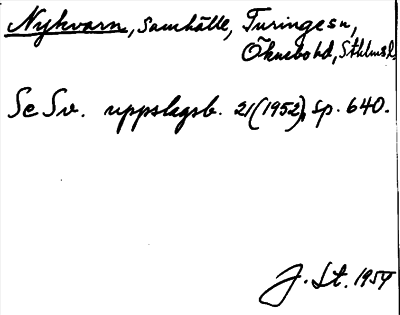 Nykvarn, samhälle, Turinge sn,
Öknebo hd, Sthlms l.
Se Sv. uppslagsb. 21 (1952), sp. 640.
J. St. 1954